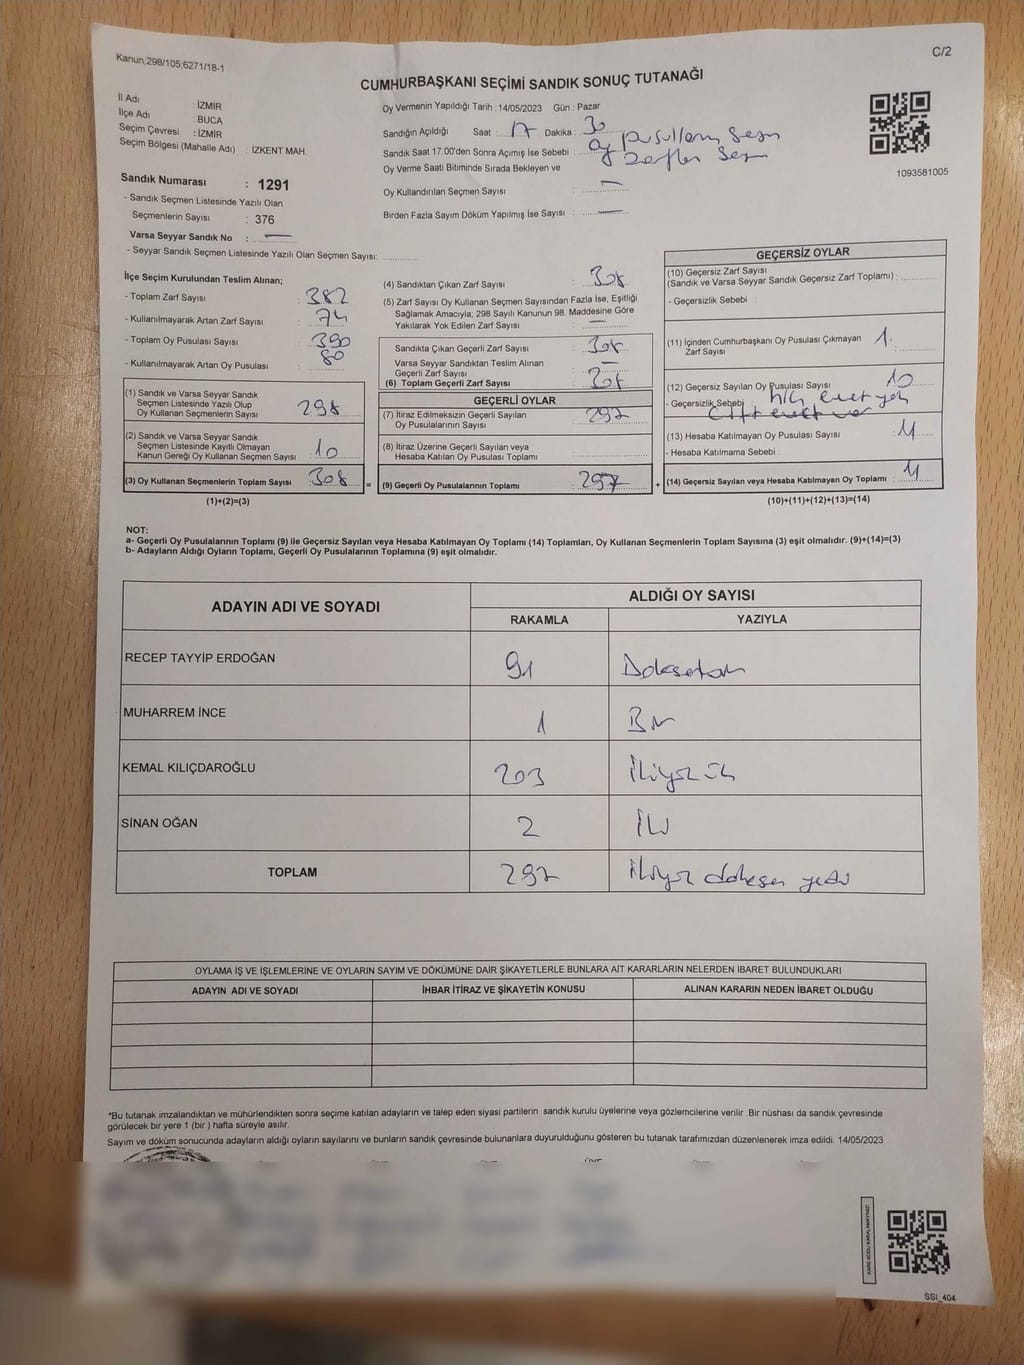 Kanun;298/105;6271/18-1
C/2
CUMHURBAŞKANI SEÇİMİ SANDIK SONUÇ TUTANAĞI
İl Adı : İZMİR
İlçe Adı : BUCA
Seçim Çevresi : İZMİR
Seçim Bölgesi (Mahalle Adı) : İZKENT MAH.
Sandık Numarası : 1291
- Sandık Seçmen Listesinde Yazılı Olan
Seçmenlerin Sayısı : 376
Varsa Seyyar Sandık No : —
- Seyyar Sandık Seçmen Listesinde Yazılı Olan Seçmen Sayısı:
Oy Vermenin Yapıldığı Tarih : 14/05/2023 Gün : Pazar
Sandığın Açıldığı Saat : 17 Dakika : 30
Sandık Saat 17:00'den Sonra Açımış İse Sebebi : oy pusulları
Oy Verme Saati Bitiminde Sırada Bekleyen ve
Oy Kullandırılan Seçmen Sayısı : —
Birden Fazla Sayım Döküm Yapılmış İse Sayısı : —
1093581005
İlçe Seçim Kurulundan Teslim Alınan;
- Toplam Zarf Sayısı : 382
- Kullanılmayarak Artan Zarf Sayısı : 74
- Toplam Oy Pusulası Sayısı : 390
- Kullanılmayarak Artan Oy Pusulası : 80
(1) Sandık ve Varsa Seyyar Sandık
Seçmen Listesinde Yazılı Olup
Oy Kullanan Seçmenlerin Sayısı 298
(2) Sandık ve Varsa Seyyar Sandık
Seçmen Listesinde Kayıtlı Olmayan
Kanun Gereği Oy Kullanan Seçmen Sayısı 10
(3) Oy Kullanan Seçmenlerin Toplam Sayısı 308
(1)+(2)=(3)
=
(4) Sandıktan Çıkan Zarf Sayısı : 308
(5) Zarf Sayısı Oy Kullanan Seçmen Sayısından Fazla İse, Eşitliği
Sağlamak Amacıyla; 298 Sayılı Kanunun 98. Maddesine Göre
Yakılarak Yok Edilen Zarf Sayısı : —
Sandıkta Çıkan Geçerli Zarf Sayısı : 308
Varsa Seyyar Sandıktan Teslim Alınan
Geçerli Zarf Sayısı : —
(6) Toplam Geçerli Zarf Sayısı : 308
GEÇERLİ OYLAR
(7) İtiraz Edilmeksizin Geçerli Sayılan
Oy Pusulalarının Sayısı : 297
(8) İtiraz Üzerine Geçerli Sayılan veya
Hesaba Katılan Oy Pusulası Toplamı
(9) Geçerli Oy Pusulalarının Toplamı : 297
+
GEÇERSİZ OYLAR
(10) Geçersiz Zarf Sayısı
(Sandık ve Varsa Seyyar Sandık Geçersiz Zarf Toplamı) :
- Geçersizlik Sebebi :
(11) İçinden Cumhurbaşkanı Oy Pusulası Çıkmayan
Zarf Sayısı : 1
(12) Geçersiz Sayılan Oy Pusulası Sayısı : 10
- Geçersizlik Sebebi : hiç evet yok
çift evet var
(13) Hesaba Katılmayan Oy Pusulası Sayısı : 11
- Hesaba Katılmama Sebebi :
(14) Geçersiz Sayılan veya Hesaba Katılmayan Oy Toplamı : 11
(10)+(11)+(12)+(13)=(14)
NOT:
a- Geçerli Oy Pusulalarının Toplamı (9) ile Geçersiz Sayılan veya Hesaba Katılmayan Oy Toplamı (14) Toplamları, Oy Kullanan Seçmenlerin Toplam Sayısına (3) eşit olmalıdır. (9)+(14)=(3)
b- Adayların Aldığı Oyların Toplamı, Geçerli Oy Pusulalarının Toplamına (9) eşit olmalıdır.
ADAYIN ADI VE SOYADI
ALDIĞI OY SAYISI
RAKAMLA YAZIYLA
RECEP TAYYİP ERDOĞAN 91
MUHARREM İNCE 1 Bir
KEMAL KILIÇDAROĞLU 203 İkiyüz üç
SİNAN OĞAN 2 İki
TOPLAM 297 İkiyüz doksan yedi
OYLAMA İŞ VE İŞLEMLERİNE VE OYLARIN SAYIM VE DÖKÜMÜNE DAİR ŞİKAYETLERLE BUNLARA AİT KARARLARIN NELERDEN İBARET BULUNDUKLARI
ADAYIN ADI VE SOYADI İHBAR İTİRAZ VE ŞİKAYETİN KONUSU ALINAN KARARIN NEDEN İBARET OLDUĞU
*Bu tutanak imzalandıktan ve mühürlendikten sonra seçime katılan adayların ve talep eden siyasi partilerin sandık kurulu üyelerine veya gözlemcilerine verilir .Bir nüshası da sandık çevresinde
görülecek bir yere 1 (bir ) hafta süreyle asılır.
Sayım ve döküm sonucunda adayların aldığı oyların sayılarını ve bunların sandık çevresinde bulunanlara duyurulduğunu gösteren bu tutanak tarafımızdan düzenlenerek imza edildi. 14/05/2023
KARE KODU KARALAMAYINIZ!
SSI_404